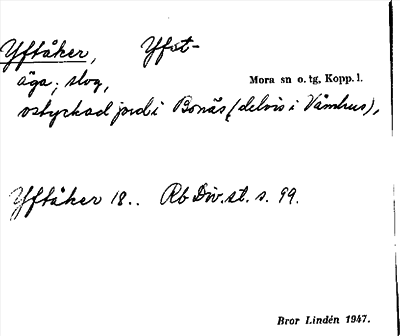 Yftåker, Yfst-
äga; slog,
Mora sn o. tg, Kopp. l.
ostyckad jord i Bonäs (delvis i Våmhus),
Yftåker 18.. Rb Div. st. s. 99.
Bror Lindén 1947.